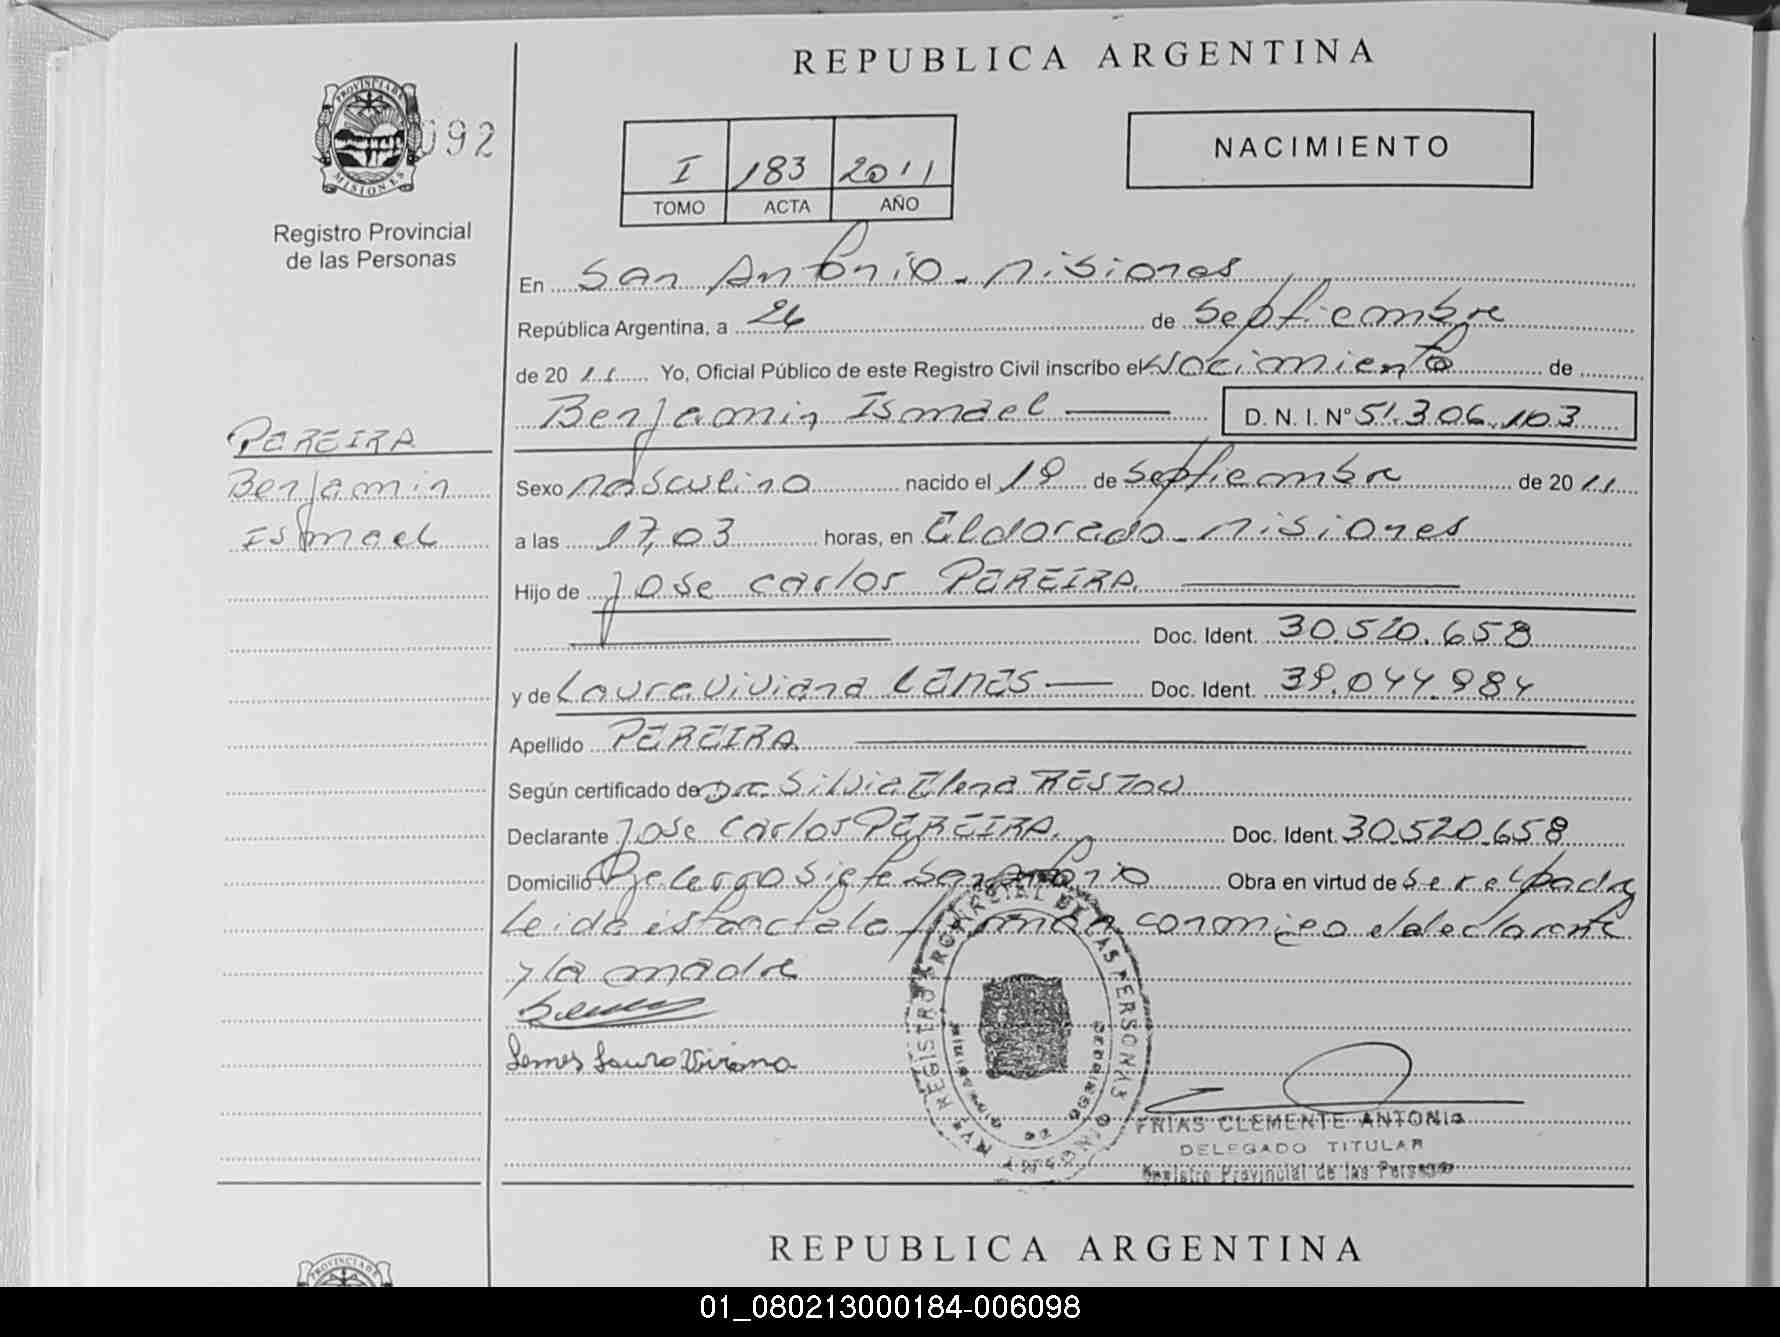 REPUBLICA ARGENTINA
PROVINCIA DE
MISIONES
092
Registro Provincial
de las Personas
I 183 2011
TOMO ACTA AÑO
NACIMIENTO
En San Antonio - Misiones
República Argentina, a 26 de Septiembre
de 2011 Yo, Oficial Público de este Registro Civil inscribo el Nacimiento de
Benjamin Ismael D. N. I. N° 51.306.103
PEREIRA
Benjamin
Ismael
Sexo Masculino nacido el 19 de Septiembre de 2011
a las 17,03 horas, en Eldorado - Misiones
Hijo de Jose Carlos PEREIRA
Doc. Ident. 30.520.658
y de Laura Viviana Doc. Ident. 39.044.984
Apellido PEREIRA
Según certificado de Dra. Silvia Elena
Declarante Jose Carlos PEREIRA Doc. Ident. 30.520.658
Domicilio San Antonio Obra en virtud de Ser el padre
Leida esta acta la firman conmigo el declarante
y la madre
Laura Viviana
REGISTRO PROVINCIAL DE LAS PERSONAS
FRIAS CLEMENTE ANTONIO
DELEGADO TITULAR
Registro Provincial de las Personas
REPUBLICA ARGENTINA
PROVINCIA DE
01_080213000184-006098